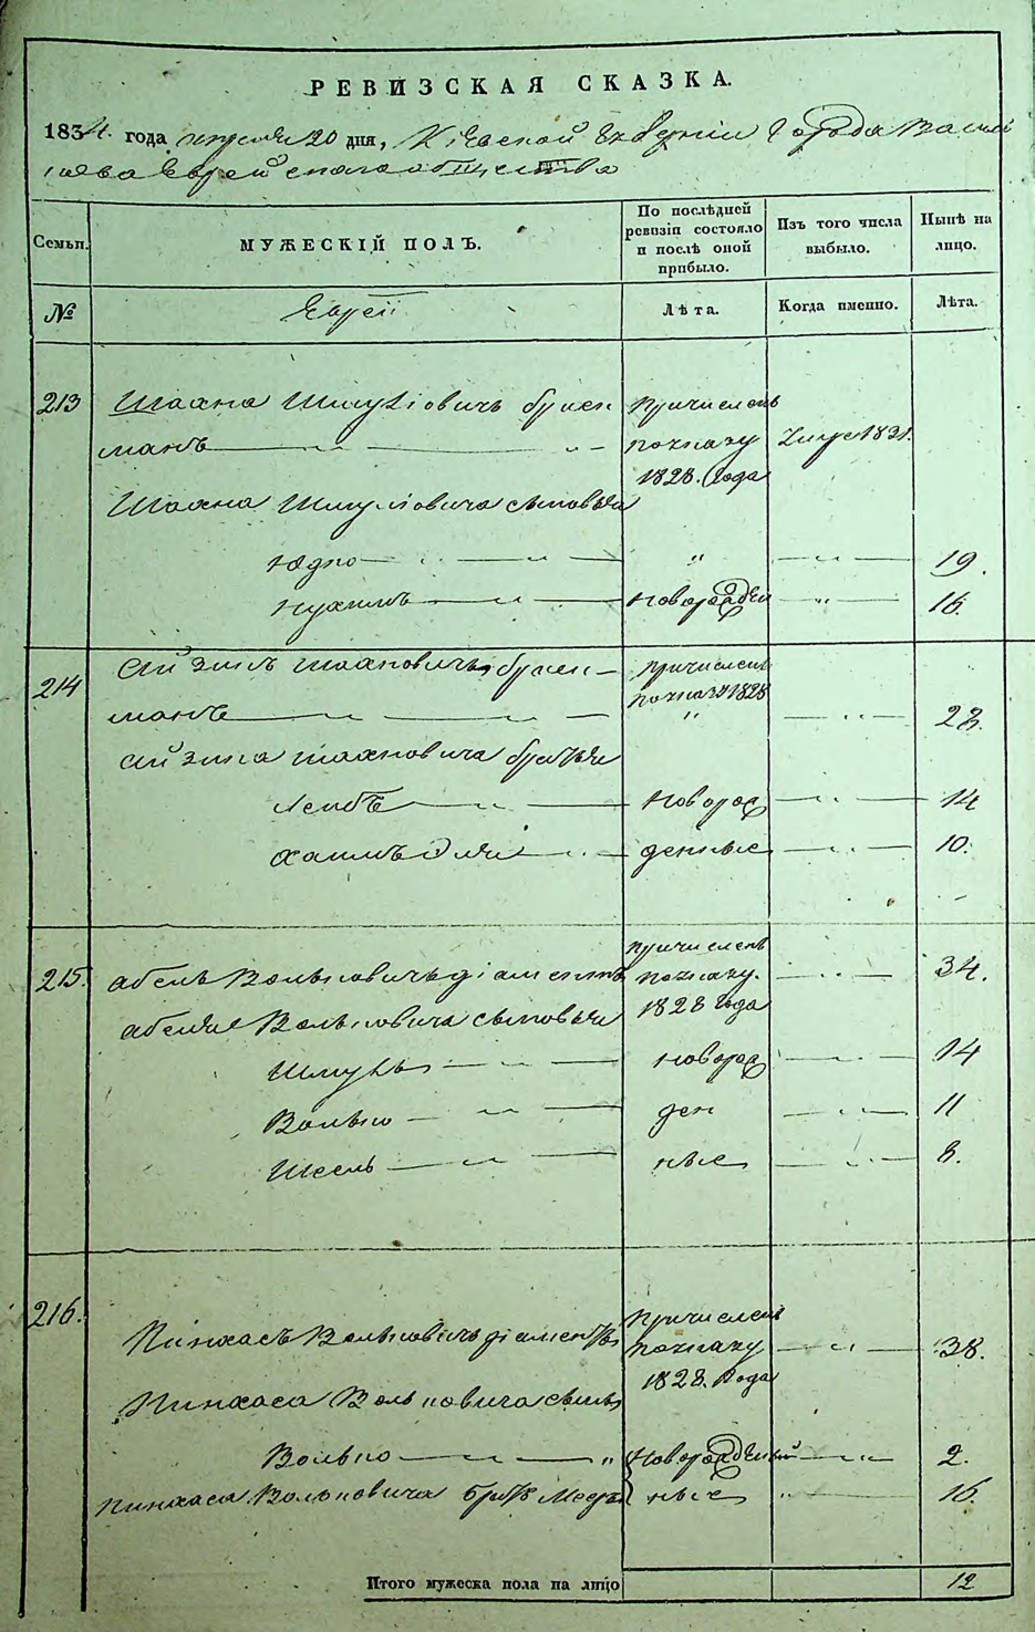 РЕВИЗСКАЯ СКАЗКА.
1834. года апреля 20 дня, Кіевской Губерніи Города Василь
кова Еврейскаго общества
Семьи. МУЖЕСКІЙ ПОЛЪ. По послѣдней ревизіи состояло и послѣ оной прибыло. Изъ того числа выбыло. Нынѣ на лицо.
№ Евреи Лѣта. Когда именно. Лѣта.
213 Шахна Шмулiовичъ Причисленъ
манъ — „ — „ — по указу 1831.
1828. Года
Шахна Шмулiовича сыновья
Юдко — „ — „ — „ — „ — 19.
Нухимъ — „ — Новорожден — „ — 16.
214 Айзикъ Шахновичъ Причисленъ
манъ — „ — по указу 1828 „ — „ — 28.
Айзика Шахновича братья
Лейбъ — „ — Новорож — „ — 14
Хаимъ — „ — денные — „ — 10.
215. Абель Вольковичъ Діаментъ Причисленъ по указу. 1828 Года — „ — 34.
Абеля Вольковича сыновья
Шмуль — „ — Новорож — „ — 14
Волько — „ — ден — „ — 11
— „ — ные — „ — 8.
216. Пинхасъ Вольковичъ Діаментъ Причисленъ по указу 1828. Года — „ — 38.
Пинхаса Вольковича сынъ
Волько — „ — „ Новорожденный — „ — 2.
Пинхаса Вольковича братъ ные „ — 16.
Итого мужеска пола на лицо 12